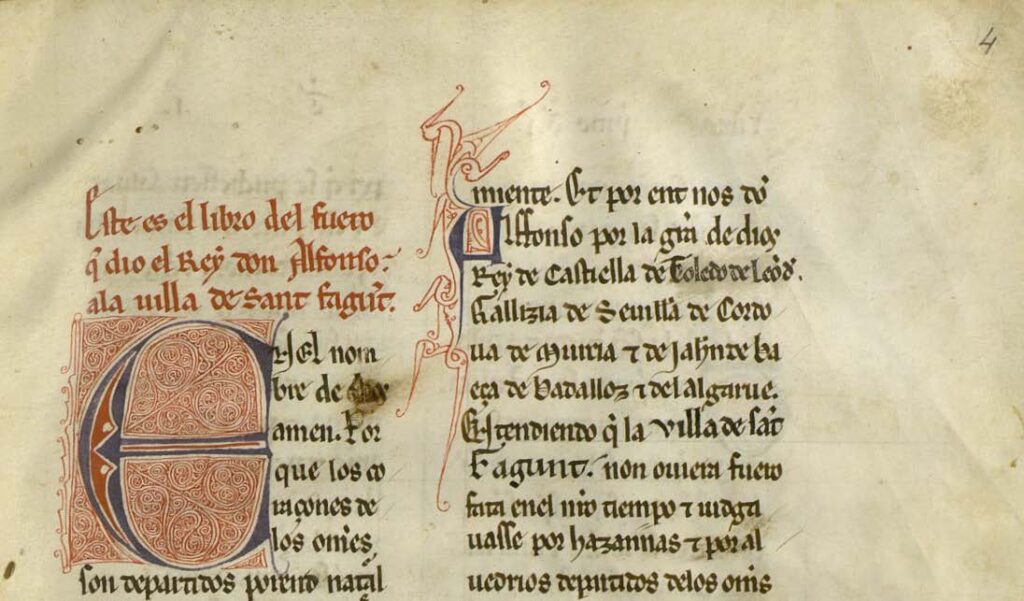 4
Este es el libro del fuero
q̃ dio el Rey don Alfonso.
ala uilla de Sant fagũt.
EN El nom
bre de dios
amen. Por
que los co
raçones de
los om̃es
son departidos porend natal
miente. Et por ent nos dõ
Alffonso por la grã de dios
Rey de Castiella de Toledo de Leõ de
Gallizia de Seuilla de Cordo
ua de Murcia ⁊ de Jahn de ba
eça de badalloz ⁊ del algarue.
Entendiendo q̃ la villa de sãt
Fagunt. non ouiera fuero
fata en el nr̃o tiempo ⁊ iudga
uasse por hazannas ⁊ por al
uedrios departidos delos om̃s